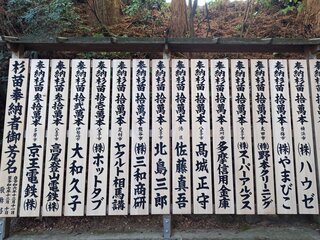 奉納杉苗 拾萬本 (株)ハウゼ
奉納杉苗 拾萬本 (株)やまびこ
奉納杉苗 拾萬本 (株)野生タクニング
奉納杉苗 拾萬本 (株)スーパーアルプス
奉納杉苗 拾萬本 多摩信用金庫
奉納杉苗 拾萬本 髙城正守
奉納杉苗 拾萬本 佐藤真吾
奉納杉苗 拾萬本 北島三郎
奉納杉苗 拾萬本 (株)三和商研
奉納杉苗 拾萬本 ヤクルト相馬講
奉納杉苗 拾萬本 (株)ホットラブ
奉納杉苗 拾萬本 大和久子
奉納杉苗 高尾登山電鉄(株)
奉納杉苗 京王電鉄(株)
杉苗奉納者御芳名